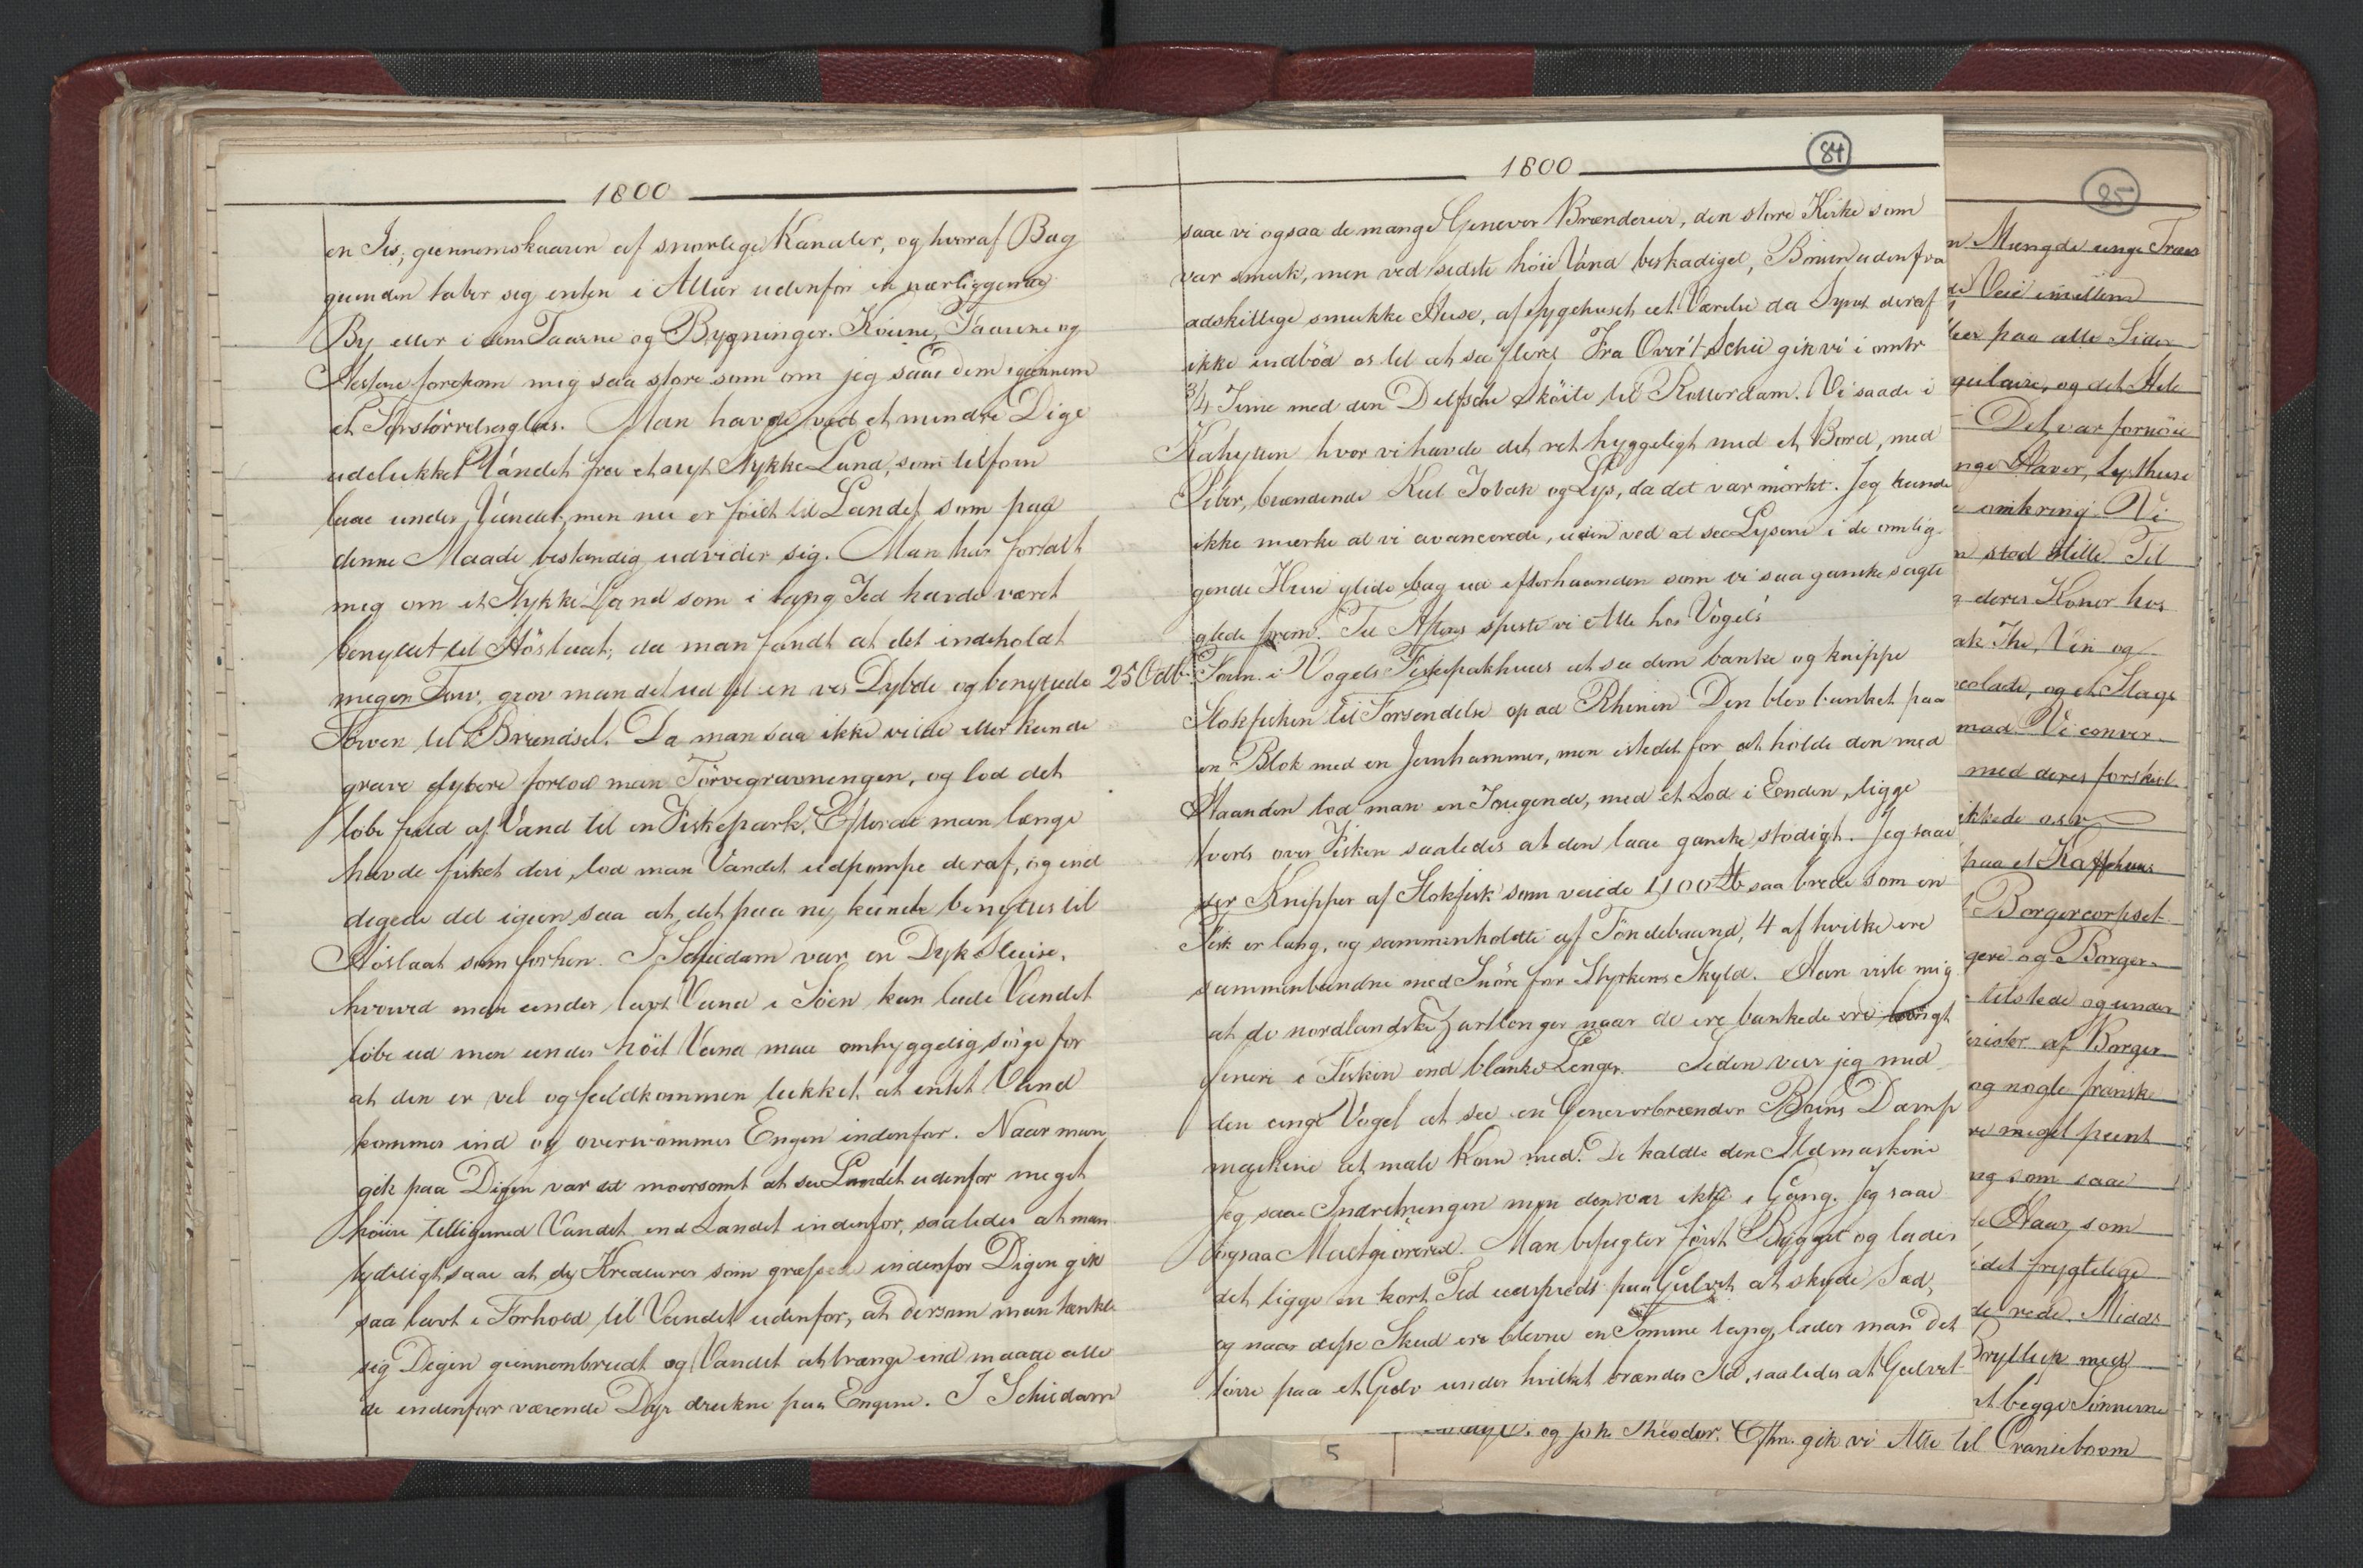 1800
en Is, giennemskaaren af snorlige Kanaler, og hvoraf Bag
grunden taber sig enten i Alleer udenfor en nærliggende
By eller i dens Taarne og Bygninger. Köerne, Faarene og
Hestene forekom mig saa store som om jeg saae dem igiennem
et Forstörrelsesglas. Man havde ved et mindre Dige
udelukket Vandet fra et nyt Stykke Land, som tilforn
laae under Vandet, men nu er föiet til Landet, som paa
denne Maade bestandig udvider sig. Man har fortalt
mig om et Stykke Land som i lang Tid havde været
benyttet til Höslaat; da man fandt at det indeholdt
megen Törv, grov man det ud til en vis Dybde og benyttede
Törven til Brændsel. Da man saa ikke vilde eller kunde
grave dybere forlod man Törvegravningen, og lod det
löbe fuld af Vand til en Fiskepark. Efterat man længe
havde fisket deri, lod man Vandet udpompe deraf, og ind
digede det igien, saa at det paa ny kunde benyttes til
Höslaat som forhen. I Schiedam var en Dyk Sluise,
hvorved man under lavt Vand i Söen kan lade Vandet
löbe ud men under höit Vand maa omhyggelig sörge for
at den er vel og fuldkommen lukket, at intet Vand
kommer ind og oversvömmer Engen indenfor. Naar man
gik paa Digen var det moersomt at see Landet udenfor meget
höiere tilligemed Vandet end Landet indenfor, saaledes at man
tydeligt saae at de Kreaturer som græssede indenfor Digen gik
saa lavt i Forhold til Vandet udenfor, at dersom man tænkte
sig Digen giennembrudt og Vandet at trænge ind maatte alle
de indenfor værende Dyr drukne paa Engene. I Schiedam
1800
84
saae vi ogsaa de mange Genever Brænderier, den store Kirke som
var smuk, men ved sidste höie Vand beskadiget, Börsen udenfra
adskillige smukke Huse, af Sygehuset eet Værelse da Synet deraf
ikke indböd os til at see flere. Fra Over't Schie gik vi i omtr
3/4 Time med den Delfsche Sköite til Rotterdam. Vi saade i
Kahytten hvor vi havde det ret hyggeligt med et Bord, med
Piber, brændende Kul Tobak og Lys, da det var mörkt. Jeg kunde
ikke mærke at vi avancerede, uden ved at see Lysene i de omlig-
gende Huse glide bag ud efterhaanden som vi saa ganske sagte
glede frem. Til Aftens spiste vi Alle hos Vogels
25 Octb. Form. i Vogels Fiskepakhuus at see dem banke og knippe
Stokfisken til Forsendelse op ad Rhinen Den blev banket paa
en Blok med en Jernhammer, men istedet for at holde den med
Haanden lod man en Tougende, med et Lod i Enden, ligge
tvers over Fisken saaledes at den laae ganske stödigt. Jeg saae
der Knipper af Stokfisk som veiede 1,100 ℔ saa brede som en
Fisk er lang, og sammenholdte af Töndebaand, 4 af hvilke ere
sammenbundne med Snöre for Styrkens Skyld. Han viste mig
at de nordlandske Zartlenger naar de ere bankede ere
finere i Fisken end blanke Lenger. Siden var jeg med
den unge Vogel at see en Geneverbrænder Damp
maskine at male Korn med. De kaldte den Ildmaskine
Jeg saae Indretningen men den var ikke i Gang. Jeg saae
ogsaa Maltgiöreriet. Man befugter först Bygget og lader
det ligge en kort Tid udspredt paa Gulvet at skyde Sæd,
og naar disse Skud ere blevne en Tomme lang, lader man det
törre paa et Gulv under hvilket brænder Ild, saaledes at Gulvet
85
n Mængde unge Træer
de Veie imellem
leer paa alle Sider
gulaire, og det Hele
Det var fornöie
nge Haver, Lysthuse
e omkring. Vi
n stod stille. Til
g deres Koner hos
ak The, Vin og
colade, og et Slags
mad. Vi conver-
med deres forskiel
ikkede os
paa et Kaffehuus
Borgercorpset
gere og Borger-
tilstede og under
cister af Borger
og nogle franske
re meget pent
ng som saae
te Haar, som
i det frygtelige
de rede. Midd.
Bryllup med
t begge Sönnerne
og Joh. Theodor. Eftm. gik vi Alle til Oranieboom
5